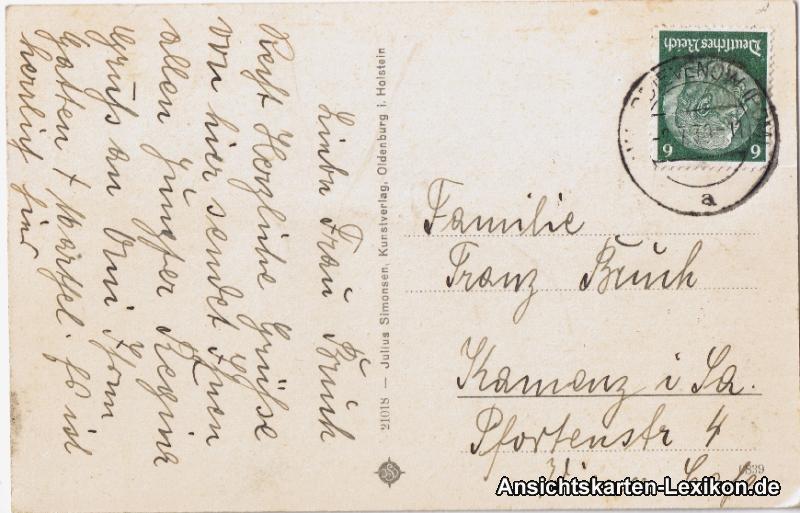 Liebe Frau Bruch
Recht Herzliche Grüße
von hier sendet Ihnen
allen Jungfer Regina
Gruß an Ihren
Gatten + Es ist
herrlich hier
21018 — Julius Simonsen, Kunstverlag, Oldenburg i. Holstein
Deutsches Reich
6 6
DIEVENOW
a
Familie
Franz Bruch
Kamenz i Sa.
Pfortenstr 4
6839
Ansichtskarten-Lexikon.de